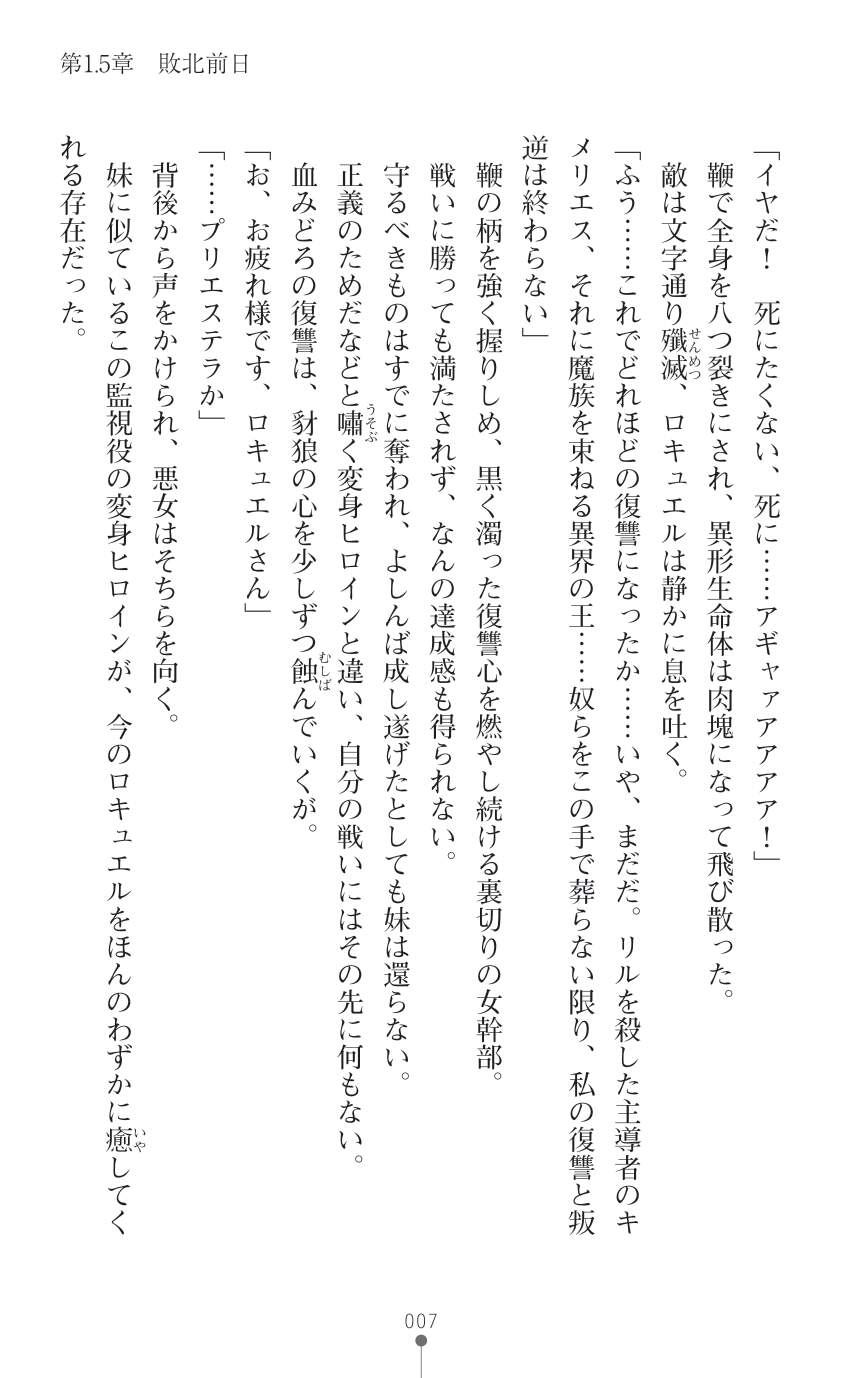 第1.5章　敗北前日
「イヤだ！　死にたくない、死に……アギャァアアアア！」
鞭で全身を八つ裂きにされ、異形生命体は肉塊になって飛び散った。
敵は文字通り殲滅、ロキュエルは静かに息を吐く。
せんめつ
「ふう……これでどれほどの復讐になったか……いや、まだだ。リルを殺した主導者のキ
メリエス、それに魔族を束ねる異界の王……奴らをこの手で葬らない限り、私の復讐と叛
逆は終わらない」
鞭の柄を強く握りしめ、黒く濁った復讐心を燃やし続ける裏切りの女幹部。
戦いに勝っても満たされず、なんの達成感も得られない。
守るべきものはすでに奪われ、よしんば成し遂げたとしても妹は還らない。
正義のためだなどと嘯く変身ヒロインと違い、自分の戦いにはその先に何もない。
うそぶ
血みどろの復讐は、豺狼の心を少しずつ蝕んでいくが。
むしば
「お、お疲れ様です、ロキュエルさん」
「……プリエステラか」
背後から声をかけられ、悪女はそちらを向く。
妹に似ているこの監視役の変身ヒロインが、今のロキュエルをほんのわずかに癒してく
いや
れる存在だった。
007